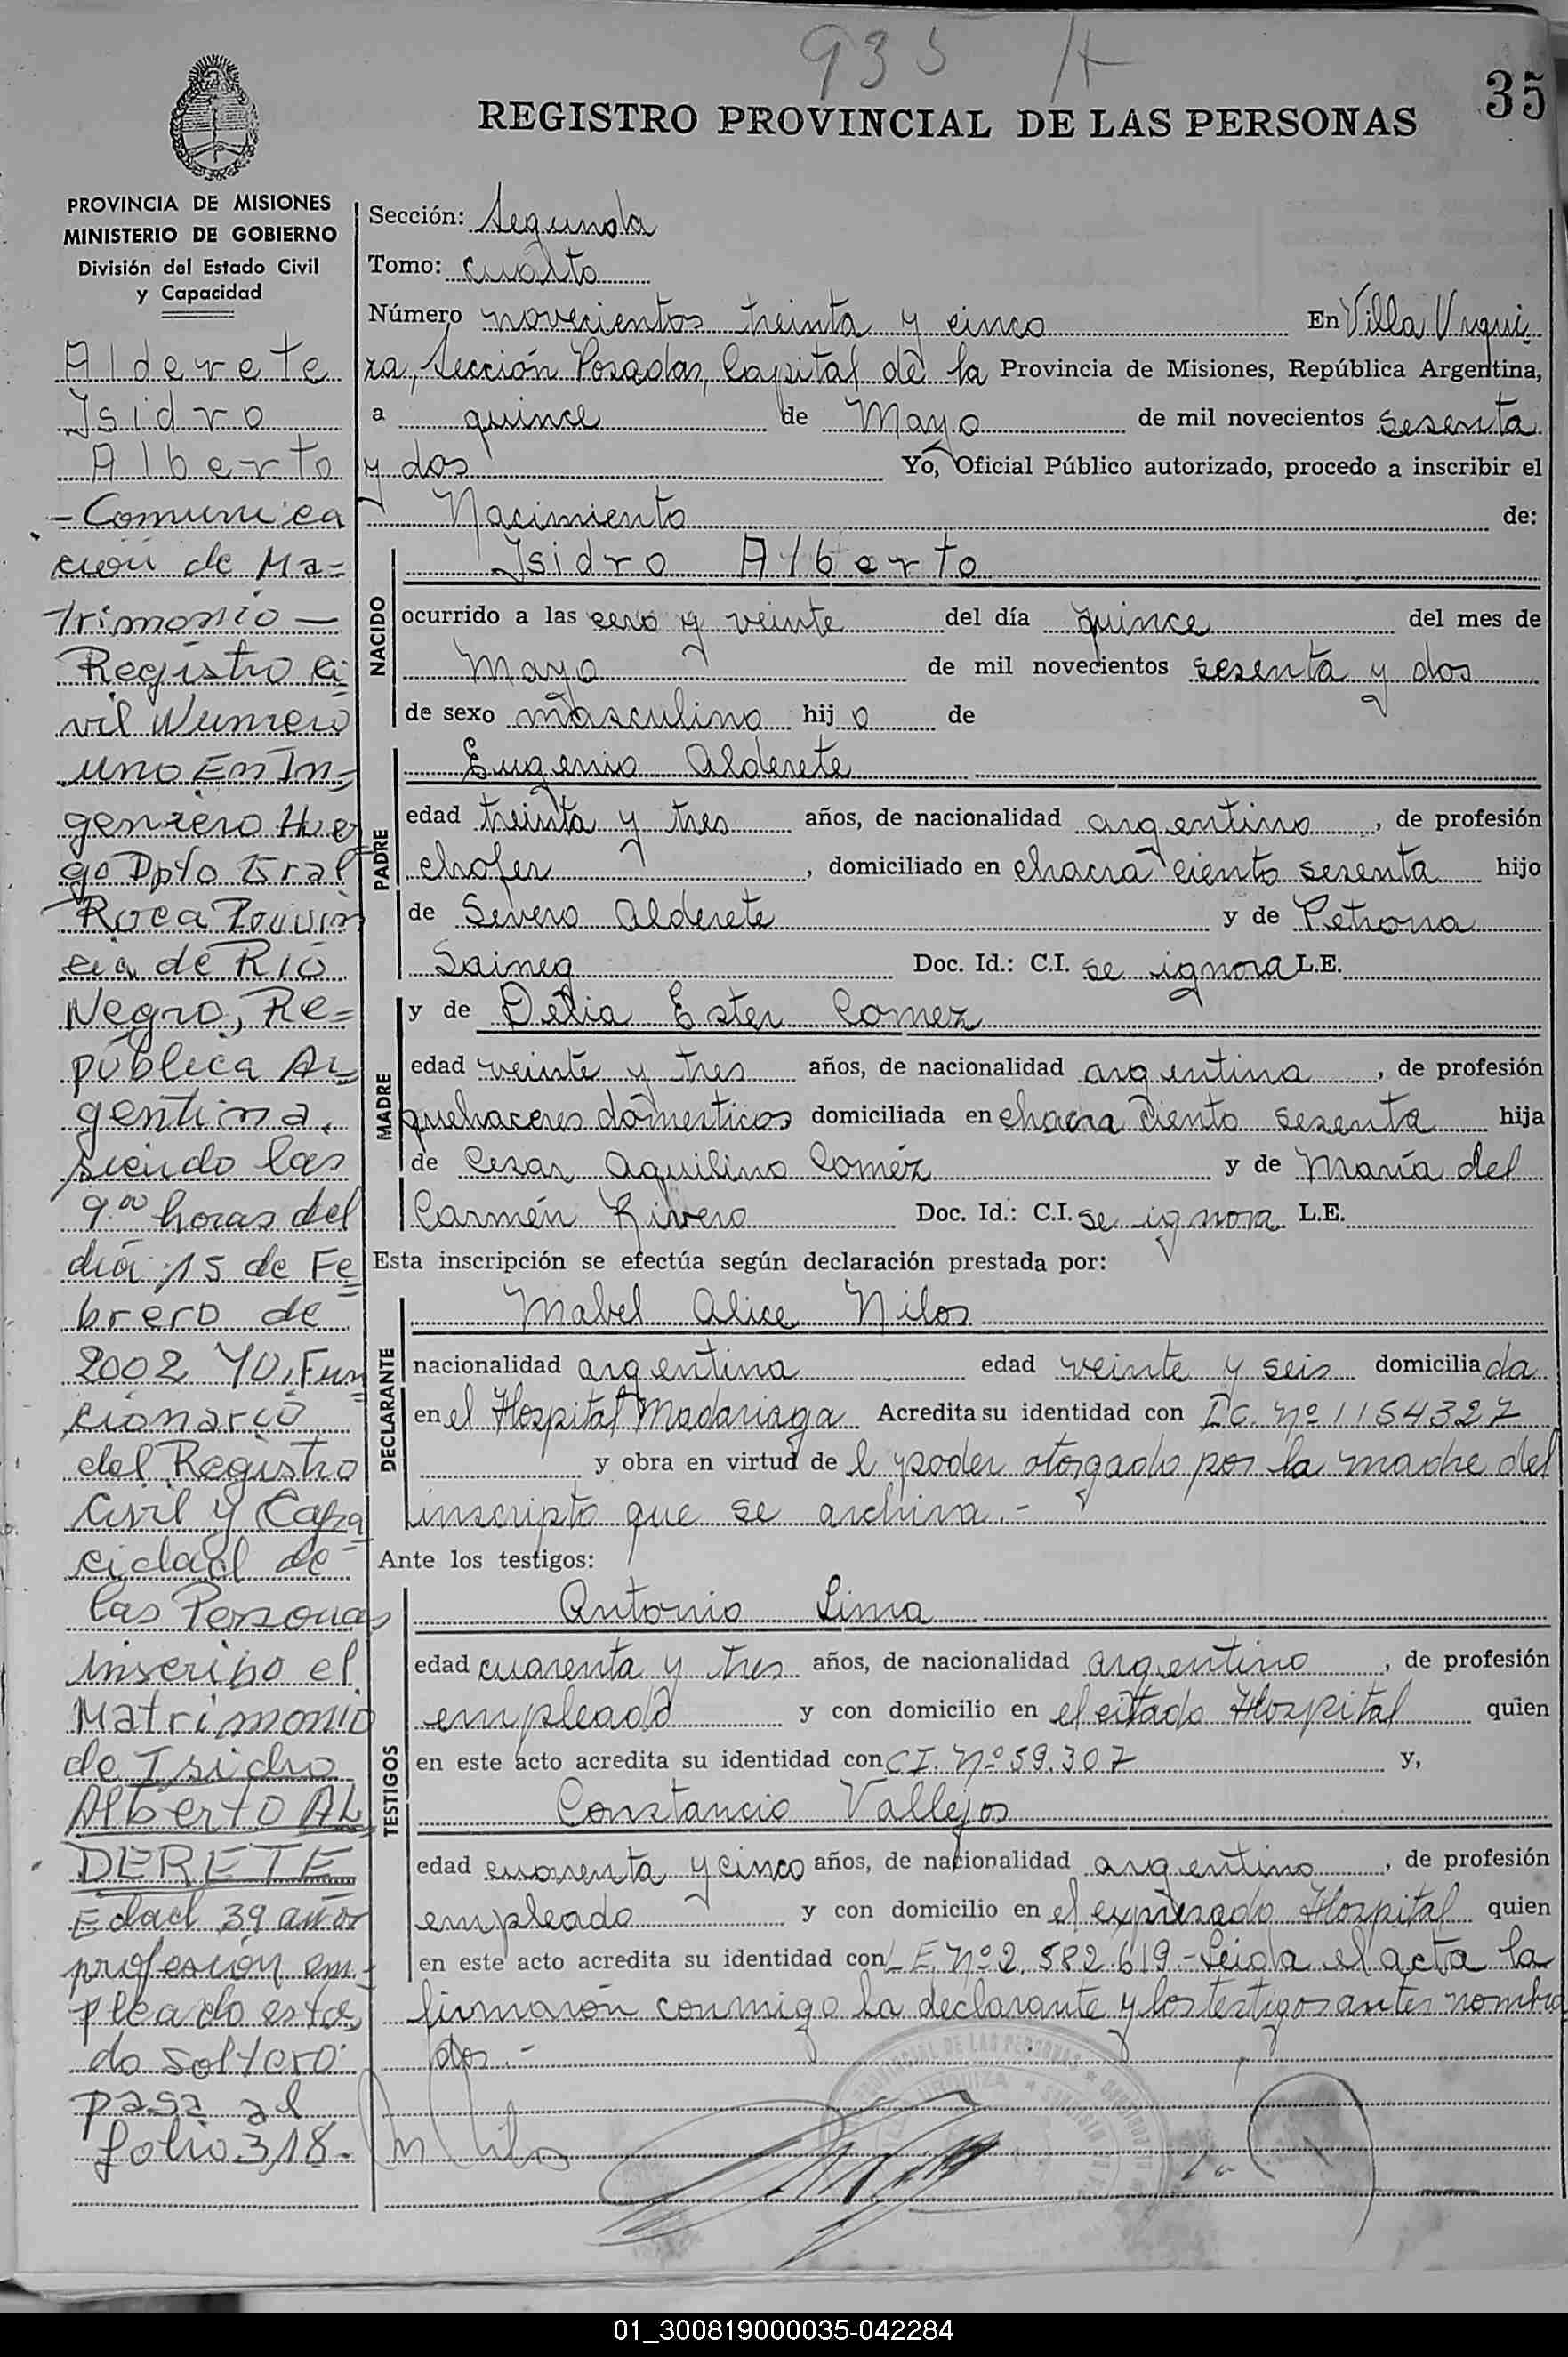 935 A
35
REGISTRO PROVINCIAL DE LAS PERSONAS
PROVINCIA DE MISIONES
MINISTERIO DE GOBIERNO
División del Estado Civil
y Capacidad
Alderete
Isidro
Alberto
- Comunica
ción de Ma=
trimonio —
Registro Ci=
vil Numero
uno En In=
geniero Hue
go Dpto Gral
Roca Provin
cia de Rio
Negro, Re=
pública Ar=
gentina,
siendo las
9.00 horas del
dia 15 de Fe=
brero de
2002 YO, Fun
cionario
del Registro
Civil y Capa=
cidad de
las Personas
inscribo el
Matrimonio
de Isidro
Alberto AL=
DERETE
Edad 39 años
profesión em=
pleado esta
do soltero.
pasa al
folio 318.-
Sección: Segunda
Tomo: cuarto
Número novecientos treinta y cinco En Villa Urqui
za, Sección Posadas, Capital de la Provincia de Misiones, República Argentina,
a quince de Mayo de mil novecientos sesenta
y dos Yo, Oficial Público autorizado, procedo a inscribir el
Nacimiento de:
NACIDO
Isidro Alberto
ocurrido a las cero y veinte del día quince del mes de
Mayo de mil novecientos sesenta y dos
de sexo masculino hij o de
PADRE
Eugenio Alderete
edad treinta y tres años, de nacionalidad argentino, de profesión
chofer, domiciliado en chacra ciento sesenta hijo
de Severo Alderete y de Petrona
Saineg Doc. Id.: C.I. se ignora L.E.
MADRE
y de Delia Ester Gomez
edad veinte y tres años, de nacionalidad argentina, de profesión
quehaceres domesticos domiciliada en chacra ciento sesenta hija
de Cesar Aquilino Goméz y de María del
Carmén Rivero Doc. Id.: C.I. se ignora L.E.
Esta inscripción se efectúa según declaración prestada por:
DECLARANTE
Mabel Alice Nilos
nacionalidad argentina edad veinte y seis domicilia da
en el Hospital Madariaga Acredita su identidad con I.C. Nº 1154327
y obra en virtud de l poder otorgado por la madre del
inscripto que se archiva.-
Ante los testigos:
TESTIGOS
Antonio Lima
edad cuarenta y tres años, de nacionalidad argentino, de profesión
empleado y con domicilio en el citado Hospital quien
en este acto acredita su identidad con C.I. Nº 59.307 y,
Constancio Vallejos
edad cuarenta y cinco años, de nacionalidad argentino, de profesión
empleado y con domicilio en el expresado Hospital quien
en este acto acredita su identidad con L.E. Nº 2.582.619 - Leida el acta la
firmarón conmigo la declarante y los testigos antes nombra
dos.-
M Nilos
01_300819000035-042284